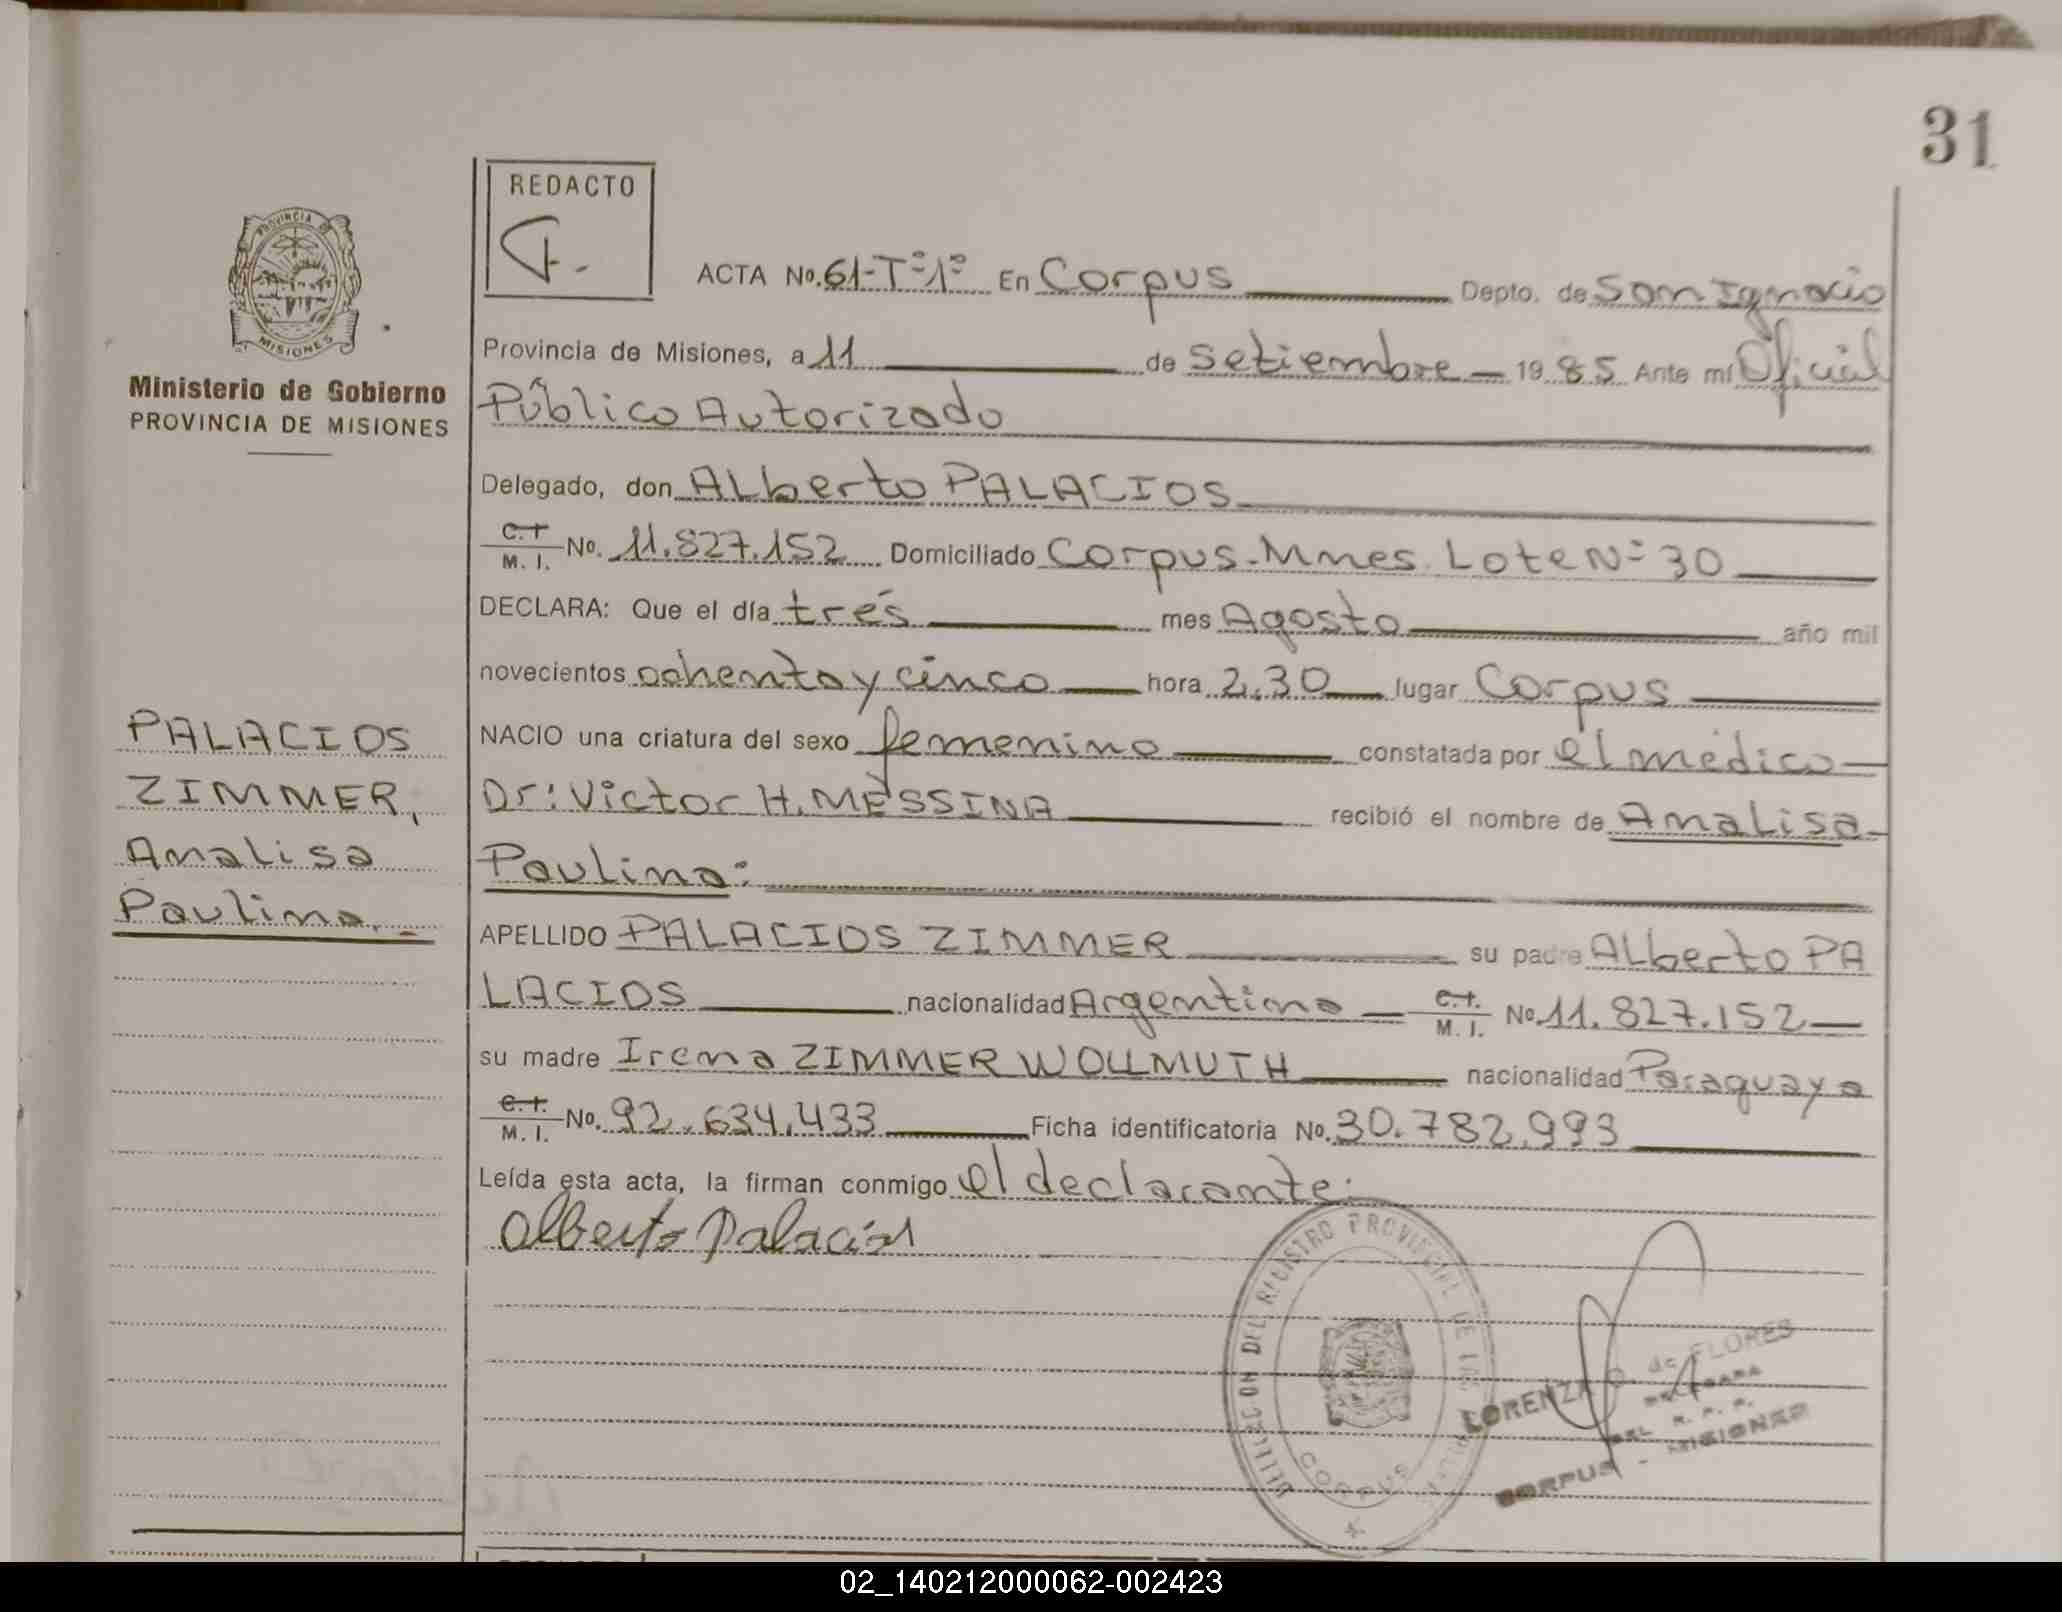 31
REDACTO
PROVINCIA DE
MISIONES
Ministerio de Gobierno
PROVINCIA DE MISIONES
ACTA No. 61-Tº1º En Corpus Depto. de San Ignacio
Provincia de Misiones, a 11 de setiembre 1985 Ante mí Oficial
Público Autorizado
Delegado, don ALberto PALACIOS
C.I. M. I. No. 11.827.152 Domiciliado Corpus-Mnes. Lote Nº 30
DECLARA: Que el día tres mes Agosto año mil
novecientos ochenta y cinco hora 2,30 lugar Corpus
NACIO una criatura del sexo femenino constatada por el médico
Dr: Victor H. MESSINA recibió el nombre de Analisa
Paulina:
APELLIDO PALACIOS ZIMMER su padre ALberto PA
LACIOS nacionalidad Argentina C.I. M. I. No. 11.827.152
su madre Irena ZIMMER WOLLMUTH nacionalidad Paraguaya
C.I. M. I. No. 92.634.433 Ficha identificatoria No. 30.782.993
Leída esta acta, la firman conmigo el declarante:
Alberto Palacios
PALACIOS
ZIMMER,
Analisa
Paulina.-
DELEGACION DEL REGISTRO PROVINCIAL DE LAS
CORPUS
LORENZA de FLORES
DELEGADA
DEL R. P. P.
CORPUS - MISIONES
02_140212000062-002423